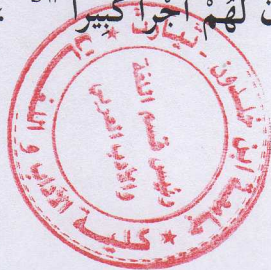 لَهُمْ أَجْرًا كَبِيرًا
جامعة ابن خلدون - تيارت
كلية الآداب و اللغات
رئيس قسم اللغة
والأدب العربي